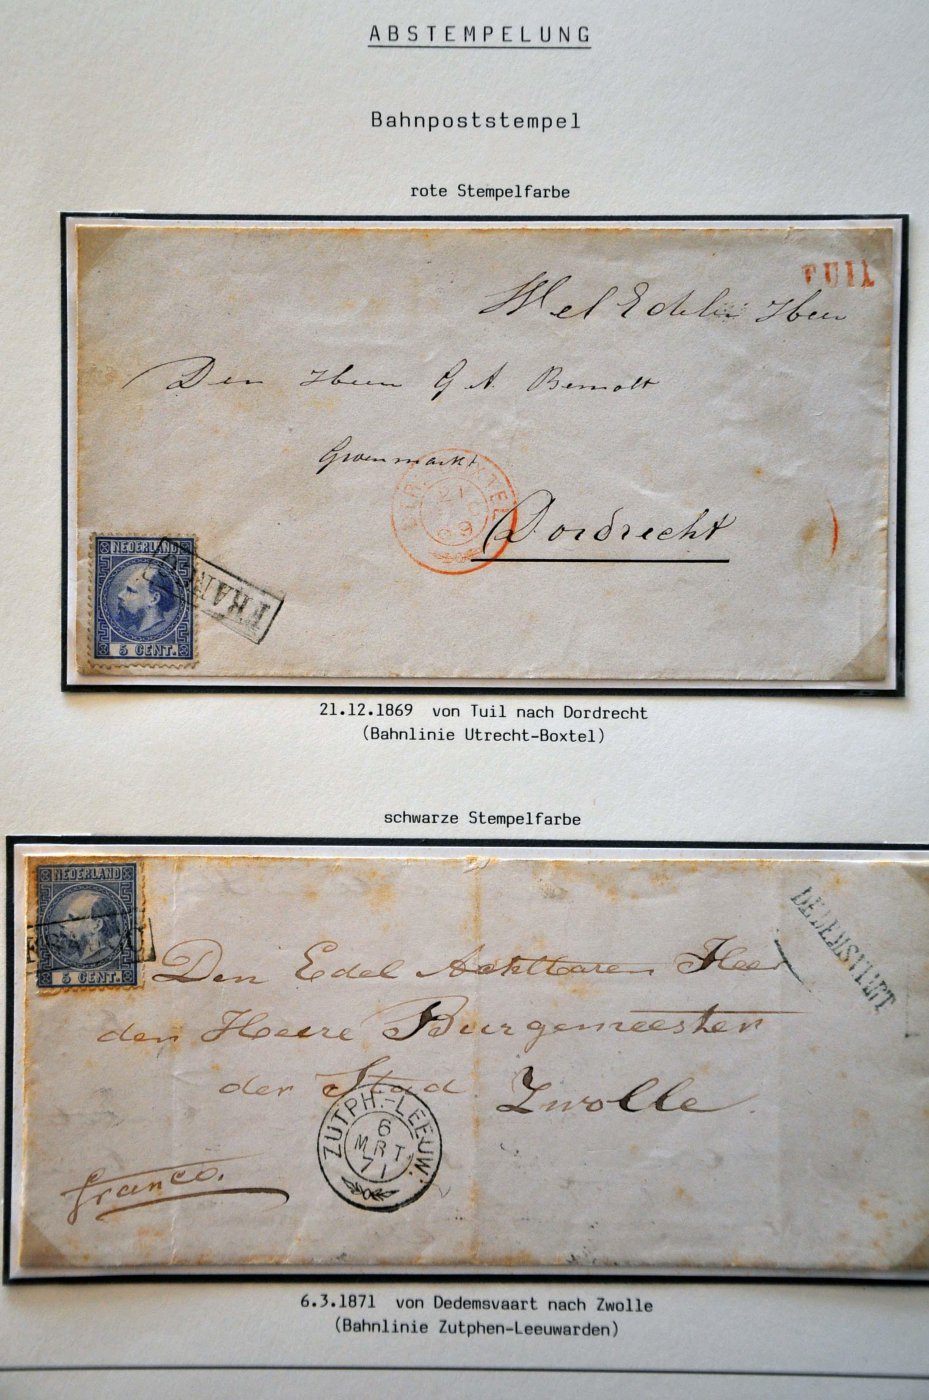 ABSTEMPELUNG
Bahnpoststempel
rote Stempelfarbe
TUIL
Wel Edelen Heer
Den Heer G A Bemolt
Groenmarkt
21
69
Dordrecht
NEDERLAND
5 CENT.
21.12.1869 von Tuil nach Dordrecht
(Bahnlinie Utrecht-Boxtel)
schwarze Stempelfarbe
NEDERLAND
5 CENT.
DEDEMSVAART
Den Edel Achtbaren Heer
den Heere Burgemeester
der Stad Zwolle.
ZUTPH:-LEEUW:
6
MRT
71
franco.
6.3.1871 von Dedemsvaart nach Zwolle
(Bahnlinie Zutphen-Leeuwarden)